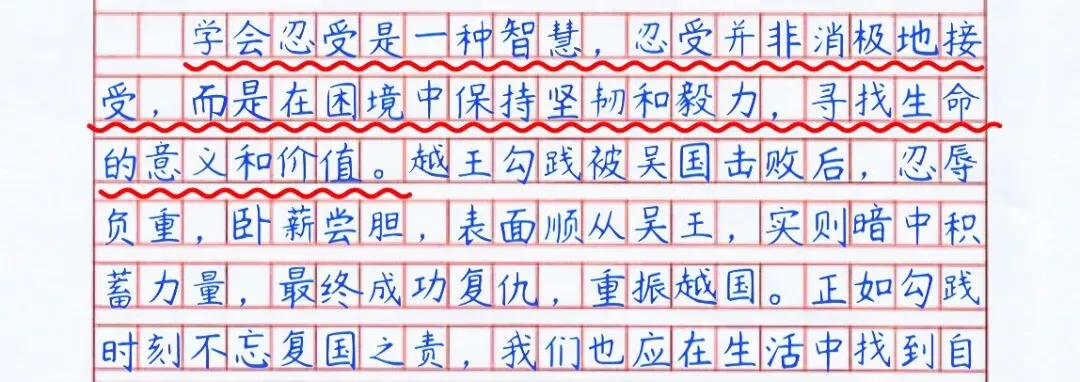 学会忍受是一种智慧，忍受并非消极地接
受，而是在困境中保持坚韧和毅力，寻找生命
的意义和价值。越王勾践被吴国击败后，忍辱
负重，卧薪尝胆，表面顺从吴王，实则暗中积
蓄力量，最终成功复仇，重振越国。正如勾践
时刻不忘复国之责，我们也应在生活中找到自